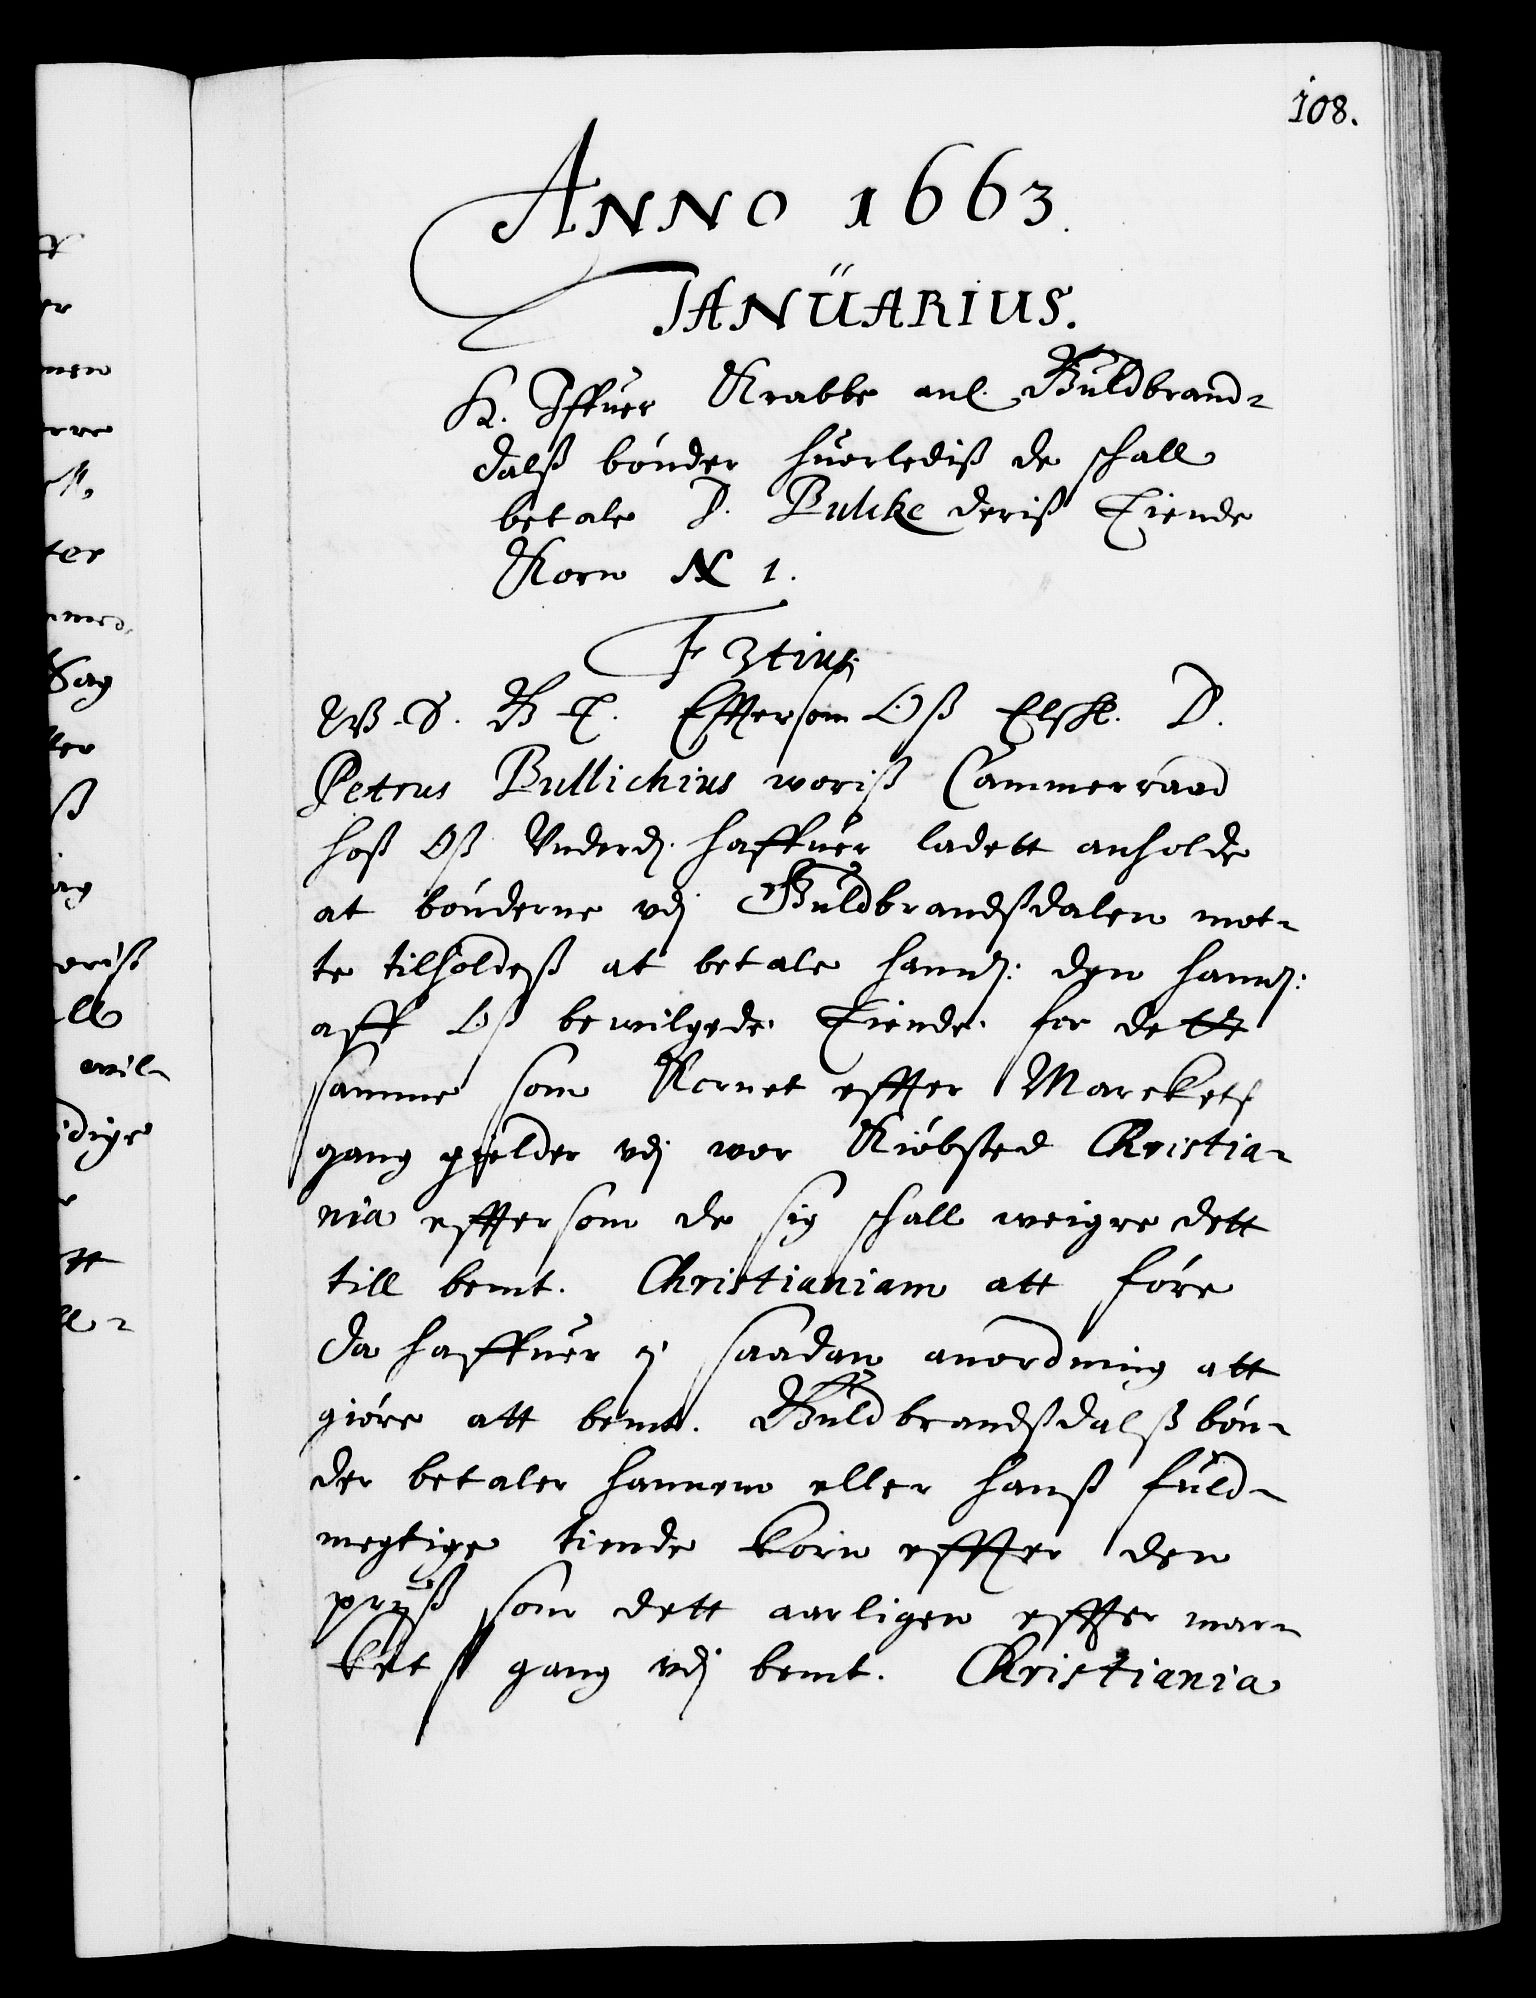 108.
ANNO 1663.
IANÜARIUS.
H. Iffuer Krabbe anl. Guldbrand-
dalß bønder huorlediß de schall
betale D. Bulche deriß Tiende
Korn N 1.
F 3tius
W. S. G T. Effter som Oß Elschl. D.
Petrus Bullichius woriß Cammerraad
hoß Oß Underd. haffuer ladett anholde
at bønderne udj Guldbrandßdalen mot-
te tilholdeß at betale hannem: den hannem:
aff Oß bewilgede Tiende for dett
samme som Kornet effter Marckets
gang gielder udj wor Kiøbsted Christia-
nia effter som de sig schall weigre dett
till bemt. Christianiam att føre
da haffuer j saadan anordning att
giøre att bemt. Guldbrandßdalß bøn-
der betaler hannem eller hanß fuld-
megtige tiende korn effter den
pryß som dett aarligen effter mar-
ketß gang udj bemt. Christiania
men
erre
ter
Sag
ter
ß
oriß
ll
wil-
dige
tt